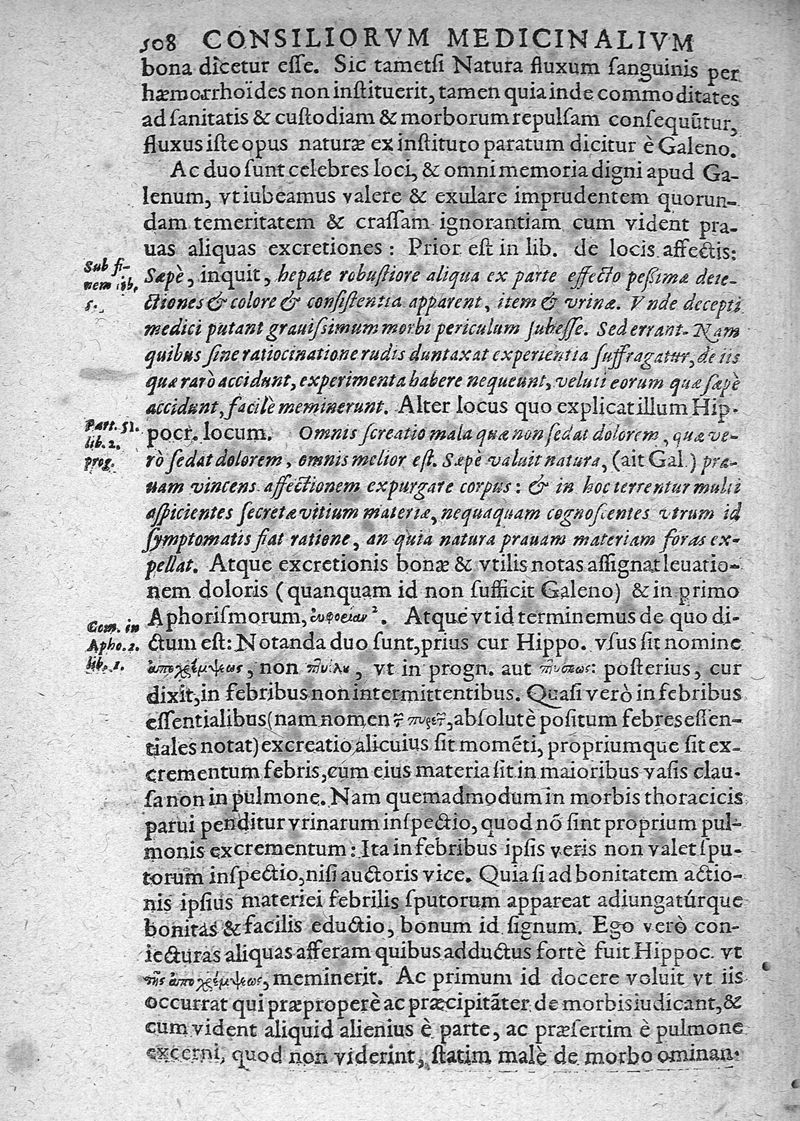 508 CONSILIORVM MEDICINALIVM
bona dicetur eſſe. Sic tametſi Natura fluxum ſanguinis per
hæmorrhoïdes non inſtituerit, tamen quia inde commoditates
ad ſanitatis & cuſtodiam & morborum repulſam conſequũtur,
fluxus iſte opus naturæ ex inſtituto paratum dicitur è Galeno.
Ac duo ſunt celebres loci, & omni memoria digni apud Ga-
lenum, vt iubeamus valere & exulare imprudentem quorun-
dam temeritatem & craſſam ignorantiam cum vident pra-
uas aliquas excretiones: Prior eſt in lib. de locis affectis:
Sub fi-
nem lib.
5.
Sæpè, inquit, hepate robuſtiore aliqua ex parte effecto peſsimæ deie-
ctiones & colore & conſiſtentia apparent, item & vrinæ. Vnde decepti
medici putant grauiſsimum morbi periculum ſubeſſe. Sed errant. Nam
quibus ſine ratiocinatione rudis duntaxat experientia ſuffragatur, de iis
quæ rarò accidunt, experimenta habere nequeunt, veluti eorum quæ ſæpè
accidunt, facilè meminerunt. Alter locus quo explicat illum Hip-
Part. 51.
lib. 2.
prog.
pocr. locum. Omnis ſcreatio mala quæ non ſedat dolorem, quæ ve-
rò ſedat dolorem, omnis melior eſt. Sæpè valuit natura, (ait Gal.) pra-
uam vincens affectionem expurgare corpus: & in hoc terrentur multi
aſpicientes ſecretæ vitium materiæ, nequaquam cognoſcentes vtrum id
ſymptomatis fiat ratione, an quia natura prauam materiam foras ex-
pellat. Atque excretionis bonæ & vtilis notas aſſignat leuatio-
nem doloris (quanquam id non ſufficit Galeno) & in primo
Aphoriſmorum, . Atque vt id terminemus de quo di-
Com. in
Apho. 2.
lib. 1.
ctum eſt: Notanda duo ſunt, prius cur Hippo. vſus ſit nomine
ἀποχρέμψεως, non , vt in progn. aut : poſterius, cur
dixit, in febribus non intermittentibus. Quaſi verò in febribus
eſſentialibus (nam nomen , abſolutè poſitum febres eſſen-
tiales notat) excreatio alicuius ſit momẽti, propriumque ſit ex-
crementum febris, cum eius materia ſit in maioribus vaſis clau-
ſa non in pulmone. Nam quemadmodum in morbis thoracicis
parui penditur vrinarum inſpectio, quod nõ ſint proprium pul-
monis excrementum: Ita in febribus ipſis veris non valet ſpu-
torum inſpectio, niſi auctoris vice. Quia ſi ad bonitatem actio-
nis ipſius materiei febrilis ſputorum appareat adiungatúrque
bonitas & facilis eductio, bonum id ſignum. Ego verò con-
iecturas aliquas afferam quibus adductus fortè fuit Hippoc. vt
τῆς ἀποχρέμψεως, meminerit. Ac primum id docere voluit vt iis
occurrat qui præproperè ac præcipitãter de morbis iudicant, &
cum vident aliquid alienius è parte, ac præſertim è pulmone
excerni, quod non viderint, ſtatim malè de morbo ominan-